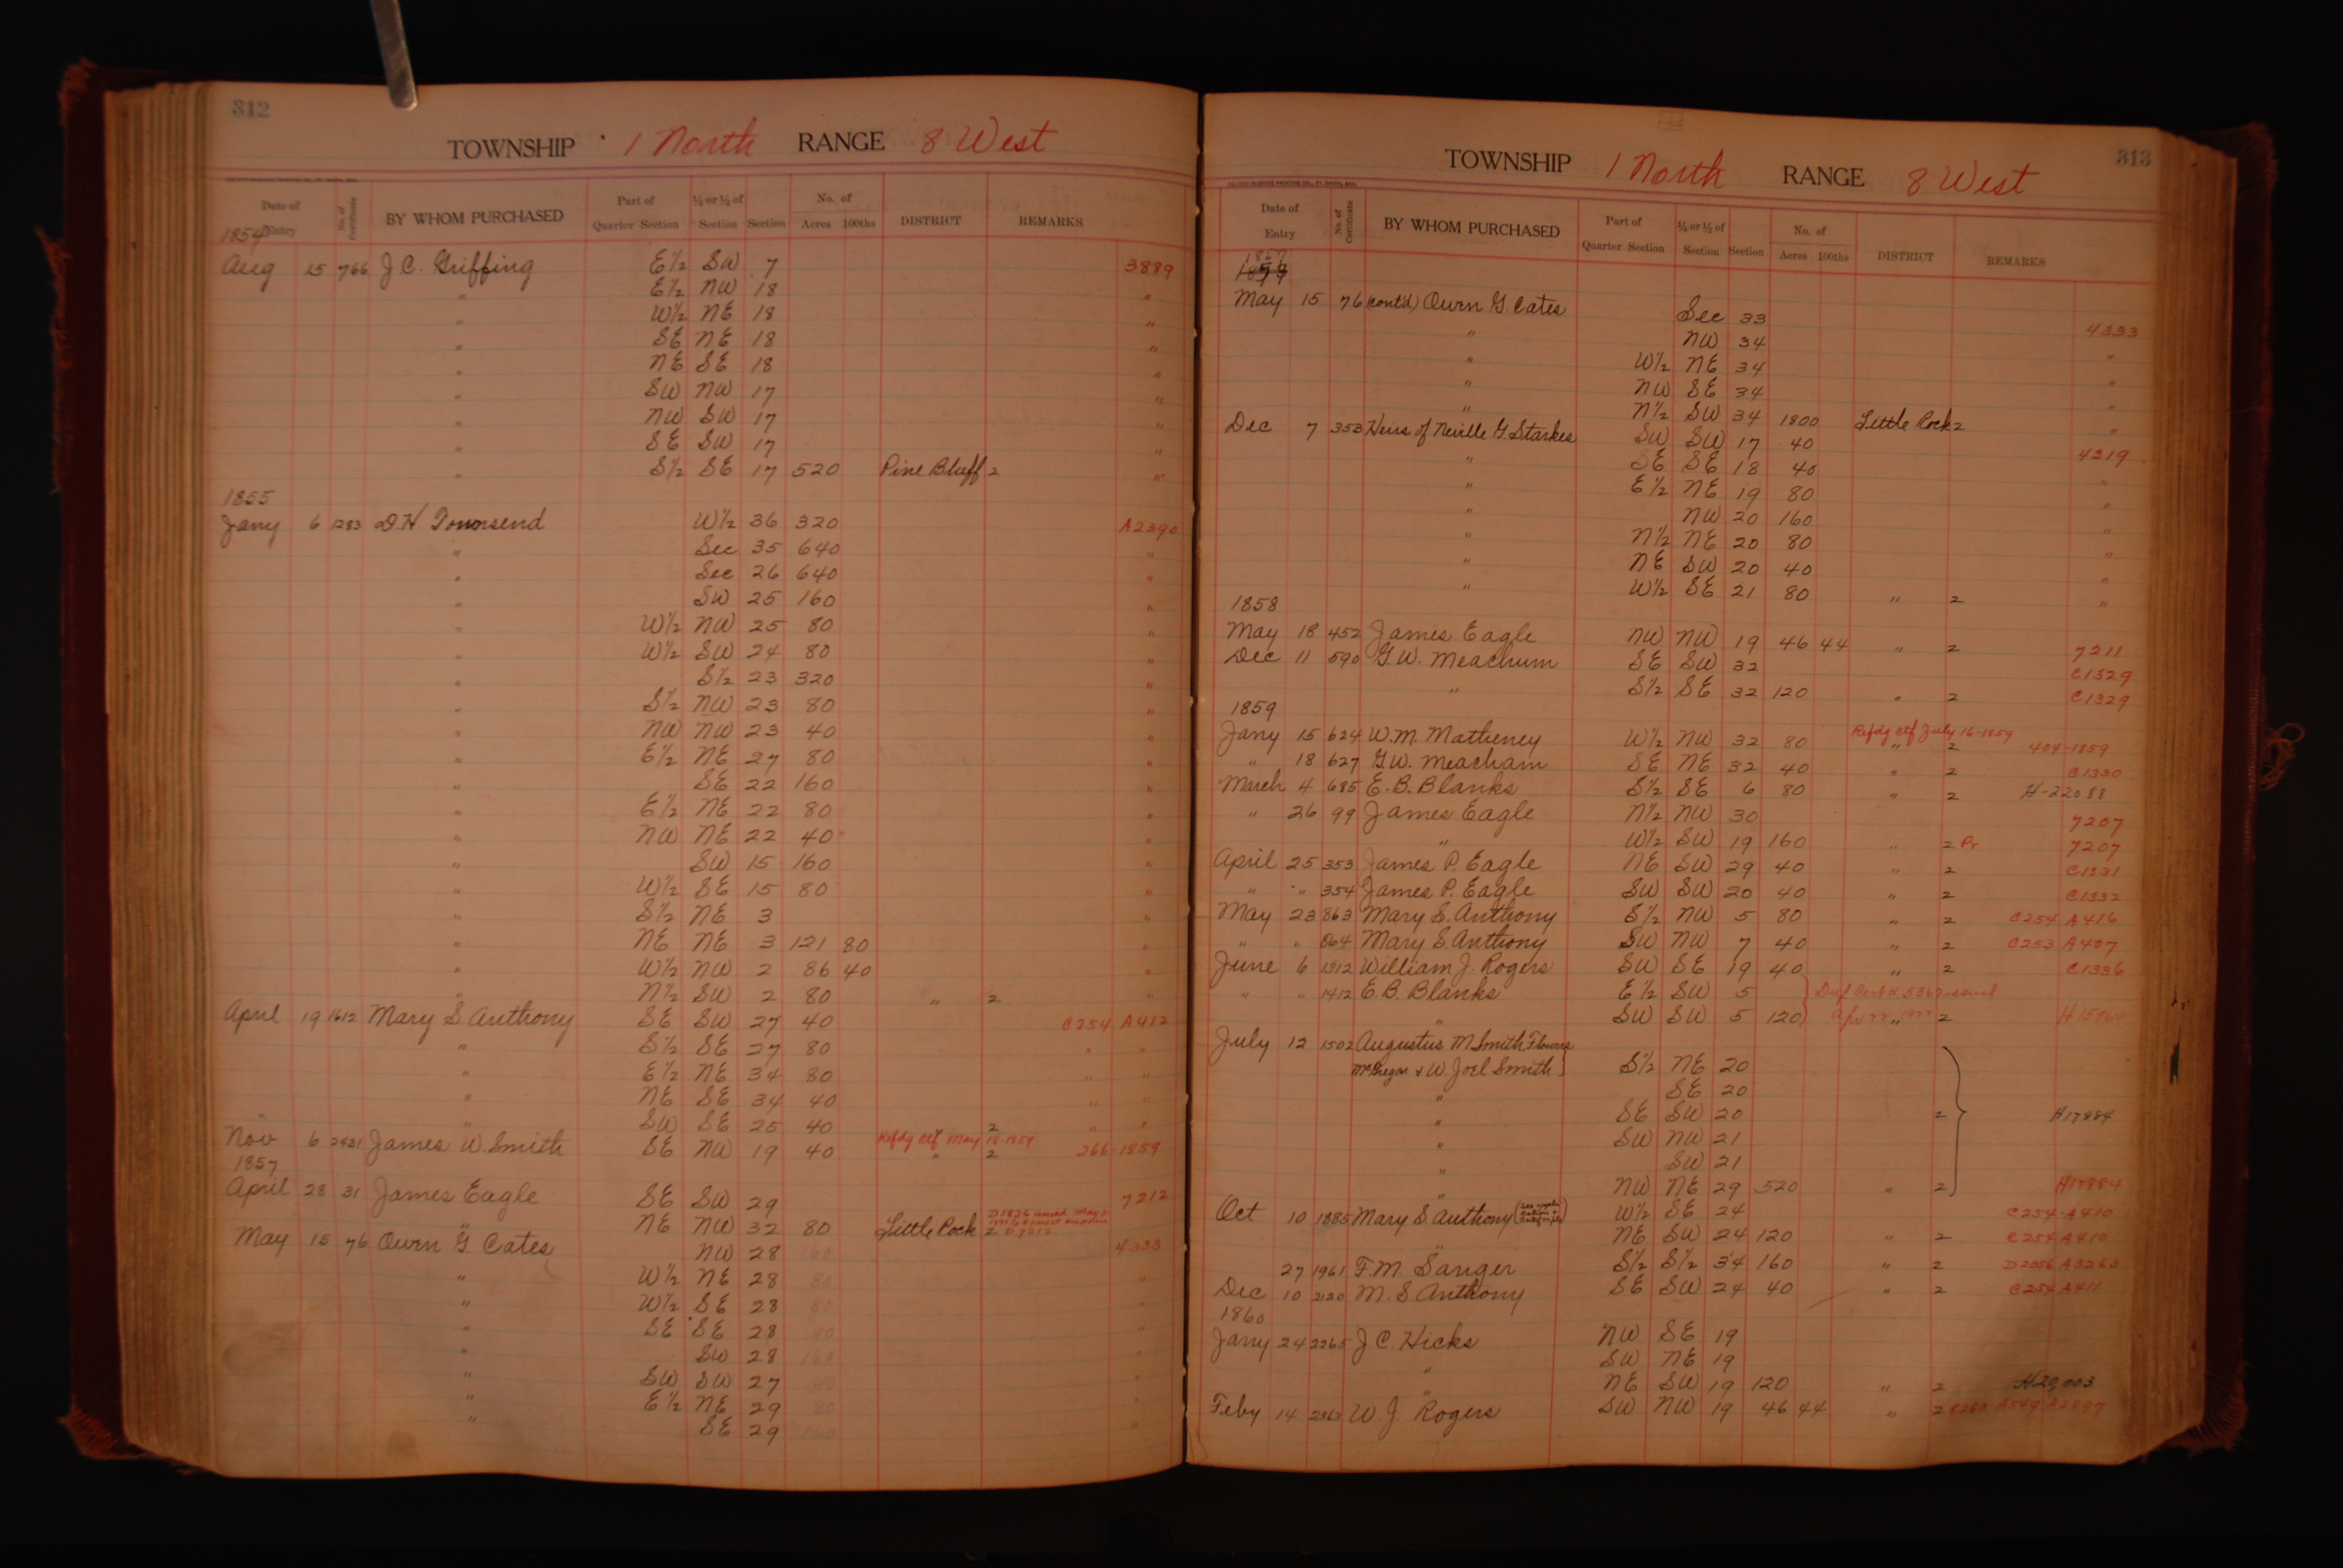 312
TOWNSHIP 1 North RANGE 8 West
Date of Entry No. of Certificate BY WHOM PURCHASED Part of Quarter Section ¼ or ½ of Section Section No. of Acres 100ths DISTRICT REMARKS
1854
Aug 25 766 J C. Griffing E½ SW 7 3889
" E½ NW 18 "
" W½ NE 18 "
" SE NE 18 "
" NE SE 18 "
" SW NW 17 "
" NW SW 17 "
" SE SW 17 "
" S½ SE 17 520 Pine Bluff 2 "
1855
Jany 6 1283 D.H. Townsend W½ 36 320 A2390
" Sec 35 640 "
" Sec 26 640 "
" SW 25 160 "
" W½ NW 25 80 "
" W½ SW 24 80 "
" S½ 23 320 "
" S½ NW 23 80 "
" NW NW 23 40 "
" E½ NE 27 80 "
" SE 22 160 "
" E½ NE 22 80 "
" NW NE 22 40 "
" SW 15 160 "
" W½ SE 15 80 "
" S½ NE 3 "
" NE NE 3 121 80 "
" W½ NW 2 86 40 "
" N½ SW 2 80 " 2 "
April 19 1612 Mary S. Anthony SE SW 27 40 C254 A412
" S½ SE 27 80 " "
" E½ NE 34 80 " "
" NE SE 34 40 " "
" SW SE 25 40 " 2 " "
Refdg Ctf May 18-1859
Nov 6 2421 James W. Smith SE NW 19 40 " 2 266-1859
1857
April 28 31 James Eagle SE SW 29 7212
" NE NW 32 80 Little Rock 2 D 7212
May 15 76 Owen G Cates NW 28 160 4333
" W½ NE 28 80 "
" W½ SE 28 80 "
" SE SE 28 40 "
" SW 28 160 "
" SW SW 27 40 "
" E½ NE 29 80 "
" SE 29 160 "
313
TOWNSHIP 1 North RANGE 8 West
Date of Entry No. of Certificate BY WHOM PURCHASED Part of Quarter Section ¼ or ½ of Section Section No. of Acres 100ths DISTRICT REMARKS
1857
May 15 76 (cont'd) Owen G. Cates Sec 33 4333
" NW 34 "
" W½ NE 34 "
" NW SE 34 "
" N½ SW 34 1800 Little Rock 2 "
Dec 7 353 Heirs of Neville G. Starkes SW SW 17 40 4319
" SE SE 18 40 "
" E½ NE 19 80 "
NW 20 160 "
" N½ NE 20 80 "
" NE SW 20 40 "
" W½ SE 21 80 " 2 "
1858
May 18 452 James Eagle NW NW 19 46 44 " 2 7211
Dec 11 590 G.W. Meachum SE SW 32 C1329
" S½ SE 32 120 " 2 C1329
1859
Refdg Ctf July 16-1859
Jany 15 624 W.M. Matheney W½ NW 32 80 " 2 404-1859
" 18 627 G.W. Meacham SE NE 32 40 " 2 C1330
March 4 685 E.B. Blanks S½ SE 6 80 " 2 H-22088
" 26 99 James Eagle N½ NW 30 7207
" W½ SW 19 160 " 2 Pr 7207
April 25 353 James P. Eagle NE SW 29 40 " 2 C1331
" " 354 James P. Eagle SW SW 20 40 " 2 C1332
May 23 863 Mary S. Anthony S½ NW 5 80 " 2 C254 A416
" " 864 Mary S. Anthony SW NW 7 40 " 2 C253 A407
June 6 1312 William J. Rogers SW SE 19 40 " 2 C1336
" " 1412 E.B. Blanks E½ SW 5
" SW SW 5 120 " 2
July 12 1502 Augustus M Smith Flowers
McGregor & W. Joel Smith S½ NE 20
" SE 20
" SE SW 20 2 H17884
" SW NW 21
" SW 21
" NW NE 29 520 " 2 H17884
Oct 10 1885 Mary S. Anthony W½ SE 24 C254-A410
" NE SW 24 120 " 2 C254 A410
27 1961 F.M. Sanger S½ S½ 34 160 " 2 D2056 A3263
Dec 10 2120 M.S. Anthony SE SW 24 40 " 2 C254 A411
1860
Jany 24 2265 J C. Hicks NW SE 19
" SW NE 19
" NE SW 19 120 " 2 H20,003
Feby 14 2363 W.J Rogers SW NW 19 46 44 " 2